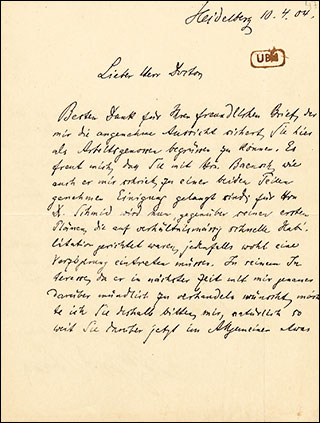 Heidelberg 10.4.04.
UBM
Lieber Herr Doktor
Besten Dank für Ihren freundlichen Brief, der
mir die angenehme Aussicht sichert, Sie hier
als Arbeitsgenossen begrüssen zu können. Es
freut mich, daß Sie mit Hrn. Baensch, wie
auch er mir schrieb, zu einer beiden Teilen
genehmen Einigung gelangt sind; für Hrn
Dr. Schmid wird nun gegenüber seinen ersten
Plänen, die auf verhältnismässig schnelle Habi-
litation gerichtet waren, jedenfalls wohl eine
Verzögerung eintreten müssen. In seinem In-
teresse, da er in nächster Zeit mit mir genauer
darüber mündlich zu verhandeln wünscht, möch-
te ich Sie deshalb bitten, mir, natürlich so
weit Sie darüber jetzt im Allgemeinen etwas